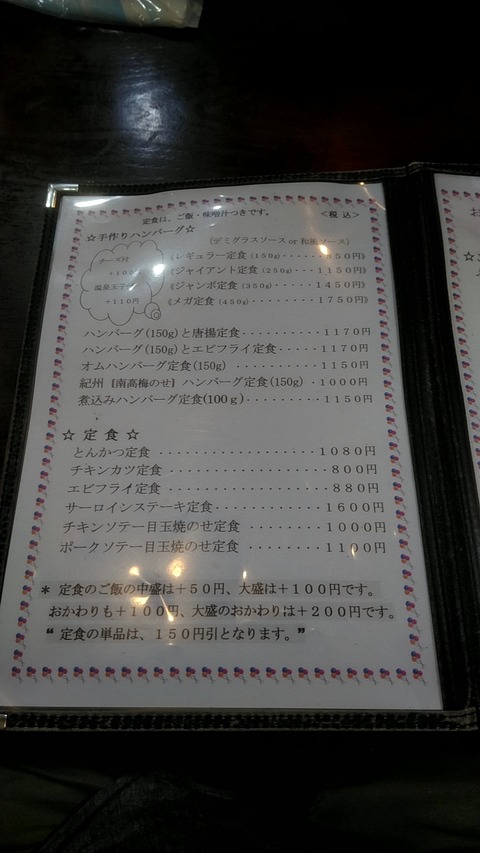 定食は、ご飯・味噌汁つきです。 <税込>
☆手作りハンバーグ☆
(デミグラスソース or 和風ソース)
チーズ付
+100円
温泉玉子付
+110円
《レギュラー定食(150g)‥‥‥850円》
《ジャイアント定食(250g)‥‥1150円》
《ジャンボ定食(350g)‥‥‥1450円》
《メガ定食(450g)‥‥‥‥1750円》
ハンバーグ(150g)と唐揚定食‥‥‥‥‥1170円
ハンバーグ(150g)とエビフライ定食‥‥‥1170円
オムハンバーグ定食(150g) ‥‥‥‥‥‥1150円
紀州[南高梅のせ]ハンバーグ定食(150g)・1000円
煮込みハンバーグ定食(100g)‥‥‥‥‥1150円
☆ 定 食 ☆
とんかつ定食 ‥‥‥‥‥‥‥‥‥1080円
チキンカツ定食 ‥‥‥‥‥‥‥‥‥800円
エビフライ定食 ‥‥‥‥‥‥‥‥‥880円
サーロインステーキ定食‥‥‥‥‥‥1600円
チキンソテー目玉焼のせ定食 ‥‥‥‥1000円
ポークソテー目玉焼のせ定食 ‥‥‥‥1100円
* 定食のご飯の中盛は+50円、大盛は+100円です。
おかわりも+100円、大盛のおかわりは+200円です。
“ 定食の単品は、150円引となります。”